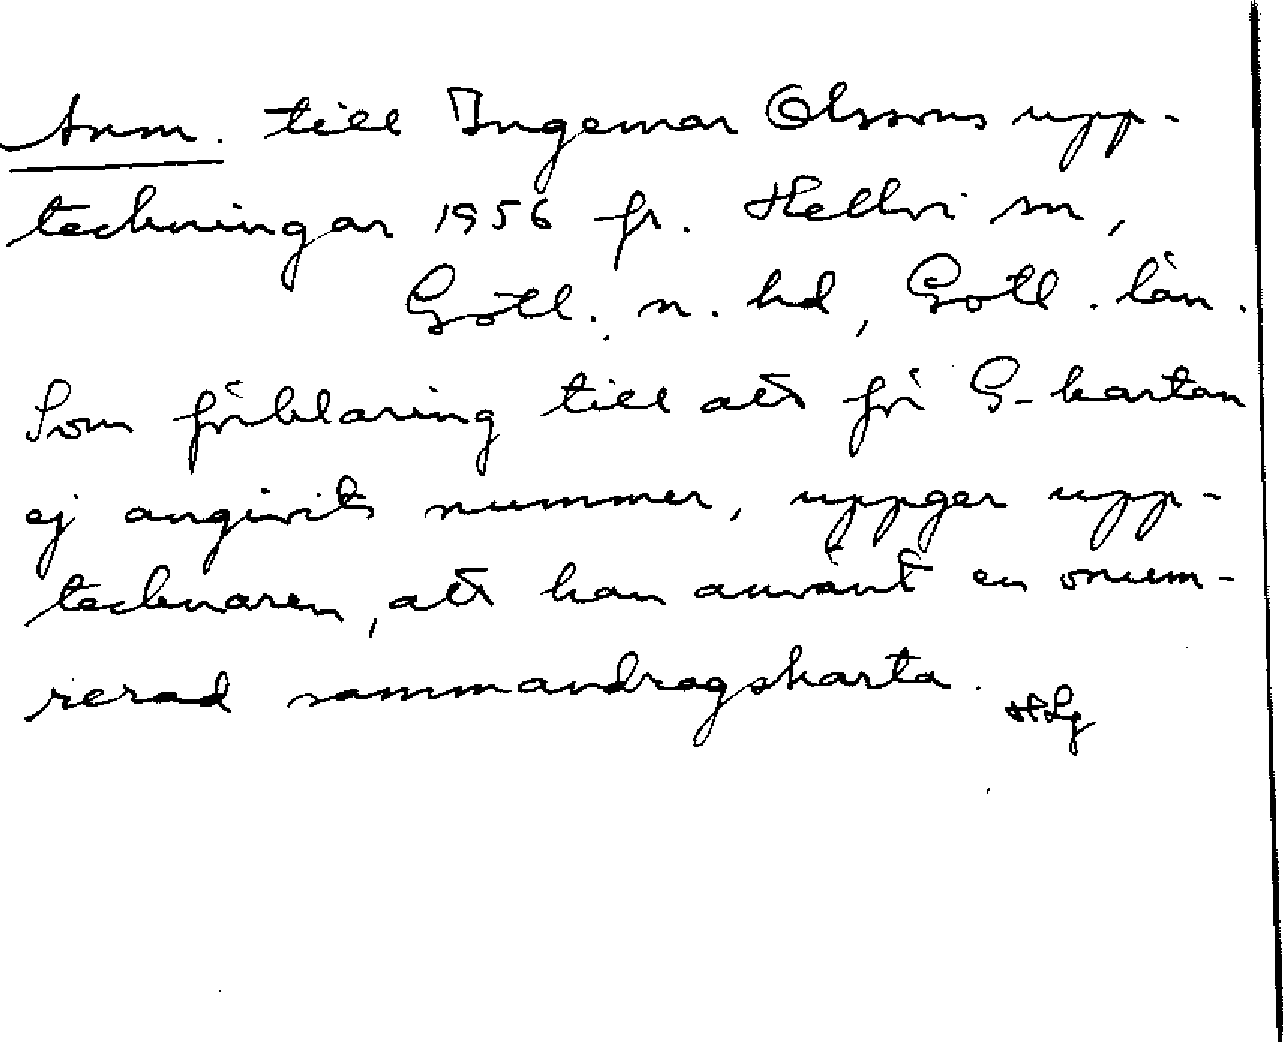 Anm. till Ingemar Olssons upp-
teckningar 1956 fr. Hellvi sn,
Gotl. n. hd, Gotl. län.
Som förklaring till att för G-kartan
ej angivits nummer, uppger upp-
tecknaren, att han använt en onum-
rerad sammandragskarta.
HLg